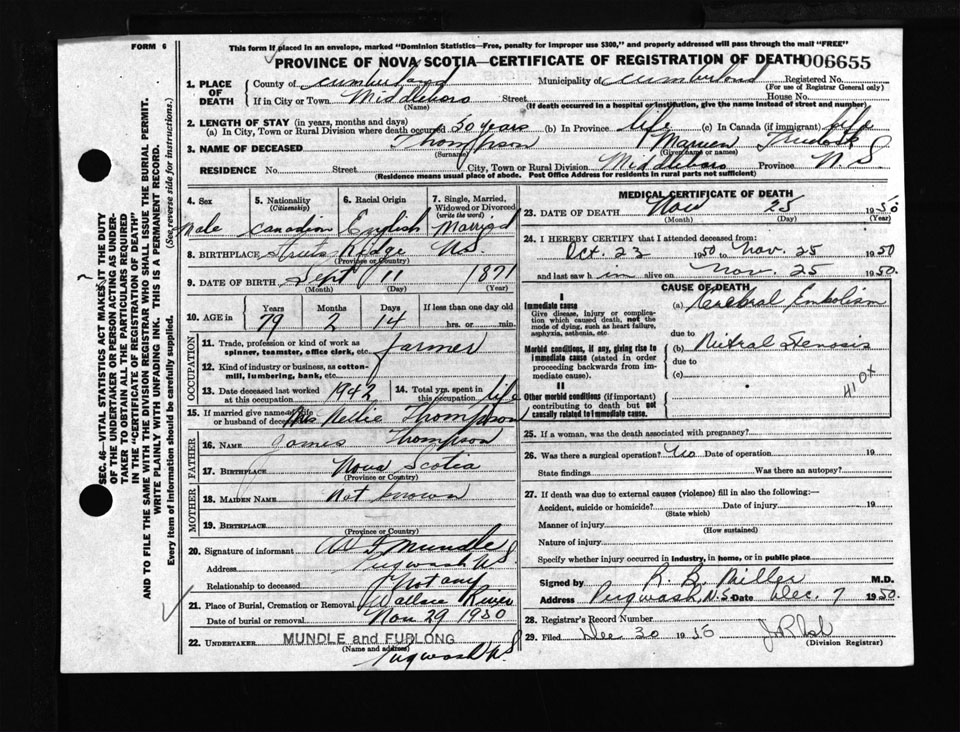 FORM 6
This form if placed in an envelope, marked "Dominion Statistics—Free, penalty for improper use $300," and properly addressed will pass through the mail "FREE"
PROVINCE OF NOVA SCOTIA—CERTIFICATE OF REGISTRATION OF DEATH 006655
SEC. 46—VITAL STATISTICS ACT MAKES IT THE DUTY
OF THE UNDERTAKER OR PERSON ACTING AS UNDER-
TAKER TO OBTAIN ALL THE PARTICULARS REQUIRED
IN THE "CERTIFICATE OF REGISTRATION OF DEATH"
AND TO FILE THE SAME WITH THE DIVISION REGISTRAR WHO SHALL ISSUE THE BURIAL PERMIT.
WRITE PLAINLY WITH UNFADING INK. THIS IS A PERMANENT RECORD.
Every item of Information should be carefully supplied. (See reverse side for instructions.)
1. PLACE OF DEATH
County of Cumberland Municipality of Cumberland Registered No.
(For use of Registrar General only)
If in City or Town Middleboro Street House No.
(Name) (If death occurred in a hospital or institution, give the name instead of street and number)
2. LENGTH OF STAY (in years, months and days)
(a) In City, Town or Rural Division where death occurred 50 years (b) In Province life (c) In Canada (if immigrant) life
3. NAME OF DECEASED Thompson
(Surname) (Given name or names)
RESIDENCE No. Street City, Town or Rural Division Middleboro Province N S
(Residence means usual place of abode. Post Office Address for residents in rural parts not sufficient)
4. Sex Male
5. Nationality (Citizenship) Canadian
6. Racial Origin English
7. Single, Married, Widowed or Divorced (write the word) Married
8. BIRTHPLACE Ridge NS
(Province or Country)
9. DATE OF BIRTH Sept 11 1871
(Month) (Day) (Year)
10. AGE in Years Months Days If less than one day old
79 2 14 hrs. or min.
OCCUPATION
11. Trade, profession or kind of work as spinner, teamster, office clerk, etc. farmer
12. Kind of industry or business, as cotton-mill, lumbering, bank, etc.
13. Date deceased last worked at this occupation 1942
14. Total yrs. spent in this occupation life
15. If married give name of wife or husband of deceased Mrs Nellie Thompson
FATHER
16. NAME James Thompson
17. BIRTHPLACE Nova Scotia
(Province or Country)
MOTHER
18. MAIDEN NAME Not known
19. BIRTHPLACE
(Province or Country)
20. Signature of informant Mundle
Address Pugwash NS
Relationship to deceased Not any
21. Place of Burial, Cremation or Removal Wallace River
Date of burial or removal Nov 29 1950
22. UNDERTAKER MUNDLE and FURLONG
(Name and address)
Pugwash NS
MEDICAL CERTIFICATE OF DEATH
23. DATE OF DEATH Nov 25 1950
(Month) (Day)
24. I HEREBY CERTIFY that I attended deceased from
Oct. 23 1950 to Nov. 25 1950
and last saw him alive on Nov. 25 1950.
CAUSE OF DEATH
I
Immediate cause
Give disease, injury or complication which caused death, not the mode of dying, such as heart failure, asphyxia, asthenia, etc.
(a) Cerebral Embolism
due to
Morbid conditions, if any, giving rise to immediate cause (stated in order proceeding backwards from immediate cause).
(b) Mitral Stenosis
due to
(c)
II
Other morbid conditions (if important) contributing to death but not causally related to immediate cause.
410X
25. If a woman, was the death associated with pregnancy?
26. Was there a surgical operation? No Date of operation 19
State findings Was there an autopsy?
27. If death was due to external causes (violence) fill in also the following:—
Accident, suicide or homicide? Date of injury 19
(State which)
Manner of injury
(How sustained)
Nature of injury
Specify whether injury occurred in industry, in home, or in public place
Signed by R. B. Miller M.D.
Address Pugwash, N.S. Date Dec. 7 1950.
28. Registrar's Record Number
29. Filed Dec 30 1950
(Division Registrar)